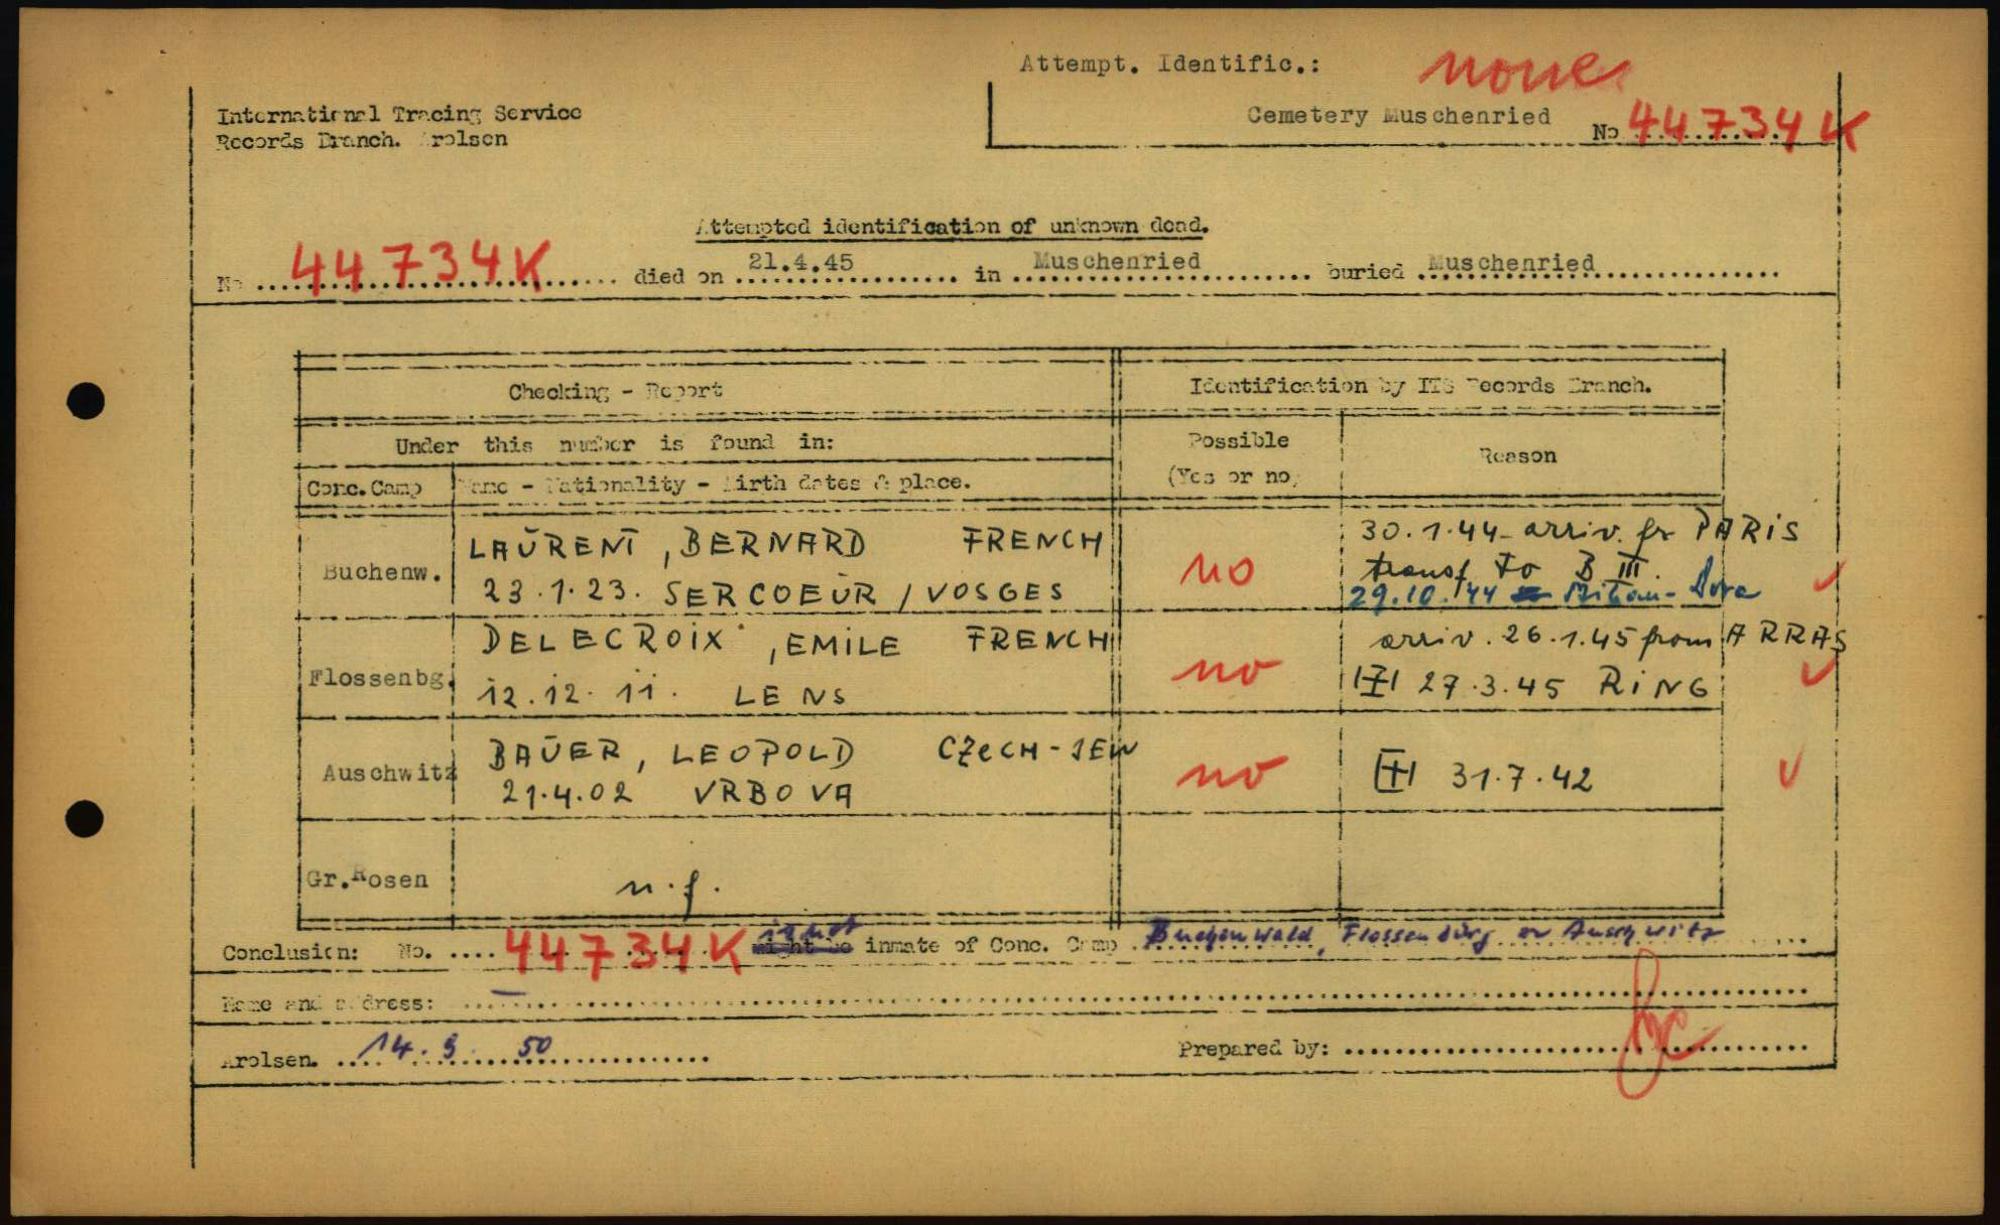 Attempt. Identific.: none
International Tracing Service
Cemetery Muschenried No 44734K
Records Branch. Arolsen
Attempted identification of unknown dead.
No 44734K died on 21.4.45 in Muschenried buried Muschenried
Checking - Report Identification by ITS Records Branch.
Under this number is found in: Possible Reason
Conc.Camp Name - Nationality - Birth dates & place. (Yes or no)
LAURENT, BERNARD FRENCH 30.1.44 - arriv. fr PARIS
Buchenw. no transf to B III.
23.1.23. SERCOEUR / VOSGES 29.10.44 - Dora
DELECROIX, EMILE FRENCH arriv. 26.1.45 from ARRAS
Flossenbg. no
12.12.11. LENS 27.3.45 RING
BAUER, LEOPOLD CZECH-JEW
Auschwitz no 31.7.42
21.4.02 VRBOVA
Gr.Rosen n.f.
Conclusion: No. 44734K might be is not inmate of Conc. Camp Buchenwald, Flossenbürg or Auschwitz
Name and address: —
Arolsen. 14.9.50 Prepared by: